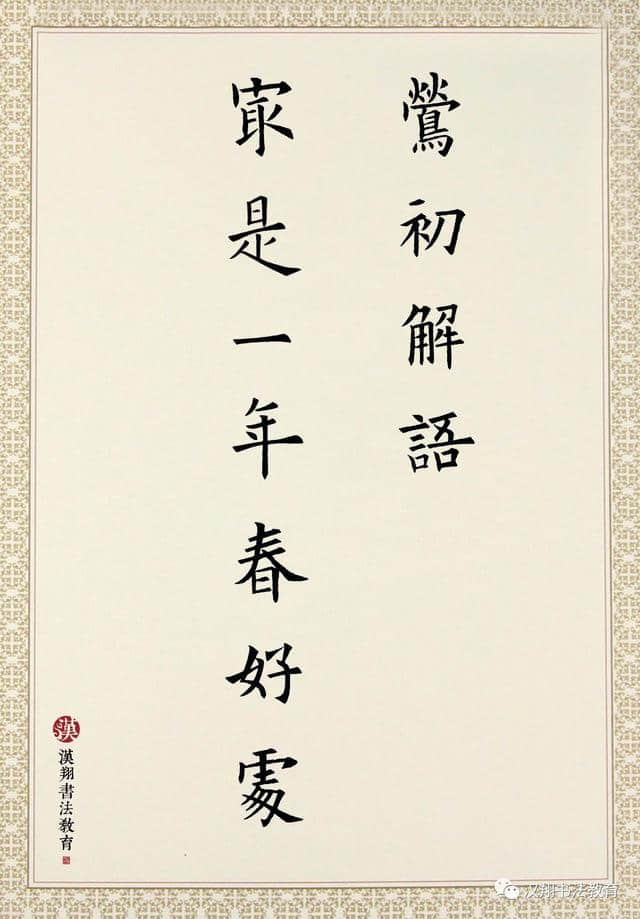 鶯初解語
冣是一年春好處
漢
漢翔書法教育
汉翔书法教育